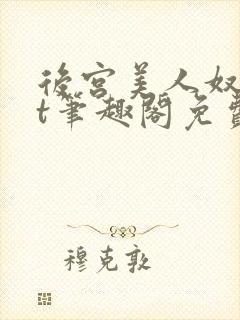 後宮美人奴
t筆趣閣免費
穆克敦